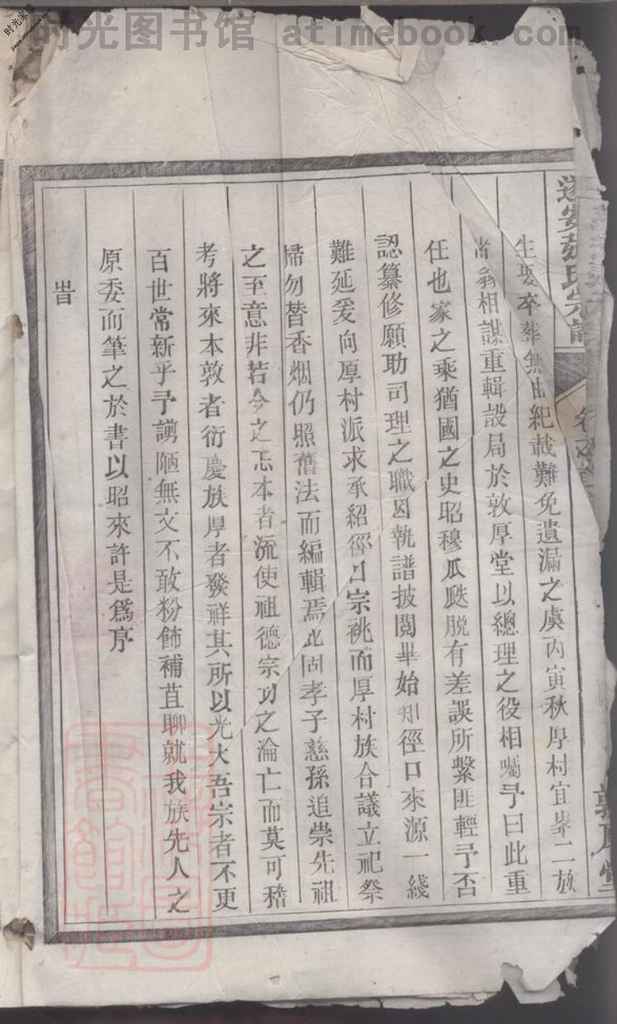 时光图书馆 atimebook.com
氏宗譜
生娶卒葬無由紀載難免遺漏之虞丙寅秋厚村宜二族
翁相謀重輯設局於敦厚堂以總理之役相囑予曰此重
任也家之乘猶國之史昭穆瓜瓞脱有差誤所繫匪輕予否
認纂修願助司理之職因執譜披閲畢始知徑口來源一綫
難延爰向厚村派求承紹徑口宗祧而厚村族合議立祀祭
掃勿替香烟仍照舊法而編輯焉此固孝子慈孫追崇先祖
之至意非若今之忘本者流使祖德宗功之淪亡而莫可稽
考將來本敦者衍慶族厚者發祥其所以光大吾宗者不更
百世常新乎予譾陋無文不敢粉飾補苴聊就我族先人之
原委而筆之於書以昭來許是爲序
旹